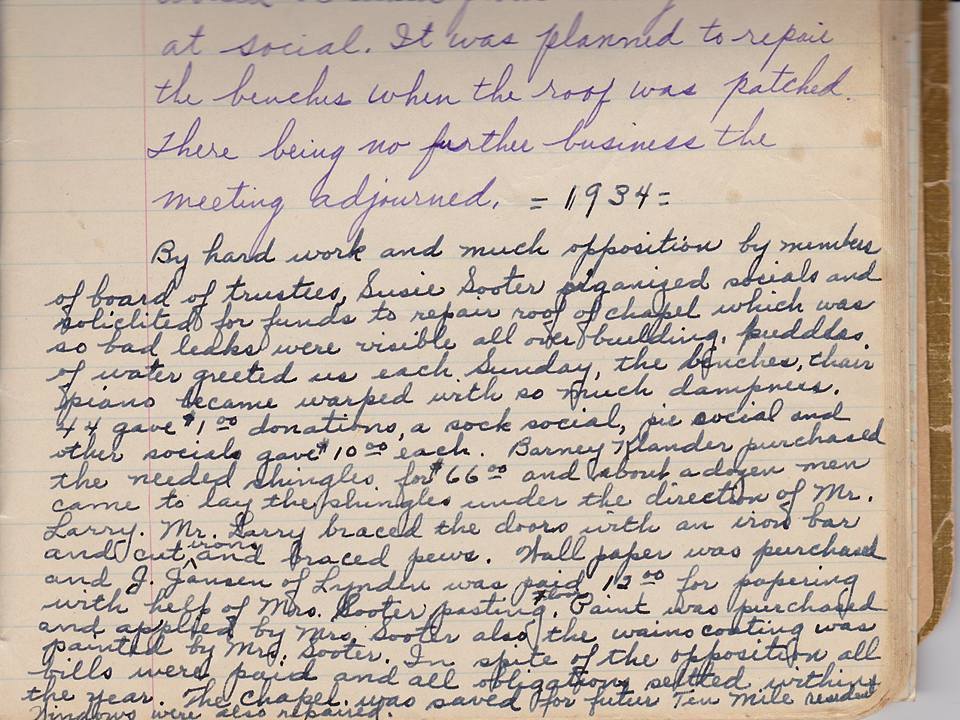 at social. It was planned to repair
the benches when the roof was patched.
There being no further business the
meeting adjourned. = 1934 =
By hard work and much opposition by members
of board of trustees, Susie Sooter organized socials and
soliclited for funds to repair roof of chapel which was
so bad leaks were visible all over building, puddles
of water greeted us each Sunday, the benches, chair
piano became warped with so much dampness.
44 gave $1.00 donations, a sock social, pie social and
other socials gave $10.00 each. Barney Klander purchased
the needed shingles for $66.00 and about a dozen men
came to lay the shingles under the direction of Mr.
Larry. Mr. Larry braced the doors with an iron bar
and cut irons and braced pews. Wall paper was purchased
and J. Jansen of Lynden was paid 12.00 for papering
with help of Mrs. Sooter pasting. Floor Paint was purchased
and applied by Mrs. Sooter also the wainscoating was
painted by Mrs. Sooter. In spite of the opposition all
bills were paid and all obligations settled within
the year. The chapel was saved for futur Ten Mile resident
Windows were also repaired.